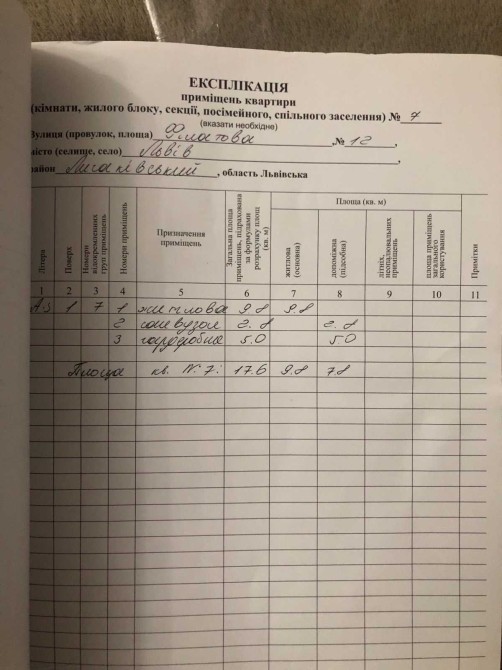 ЕКСПЛІКАЦІЯ
приміщень квартири
(кімнати, жилого блоку, секції, посімейного, спільного заселення) № 7
(вказати необхідне)
Вулиця (провулок, площа) Філатова, № 12,
місто (селище, село) Львів,
район Личаківський, область Львівська
Літера
Поверх
Номери відокремлених груп приміщень
Номери приміщень
Призначення приміщень
Загальна площа приміщень, підрахована за формулами розрахунку площ (кв. м)
Площа (кв. м)
житлова (основна)
допоміжна (підсобна)
літніх, неопалювальних приміщень
площа приміщень загального користування
Примітки
1 2 3 4 5 6 7 8 9 10 11
1 7 1 житлова 9.8 9.8
2 санвузол 2.8 2.8
3 гардеробна 5.0 5.0
Площа кв. №7: 17.6 9.8 7.8